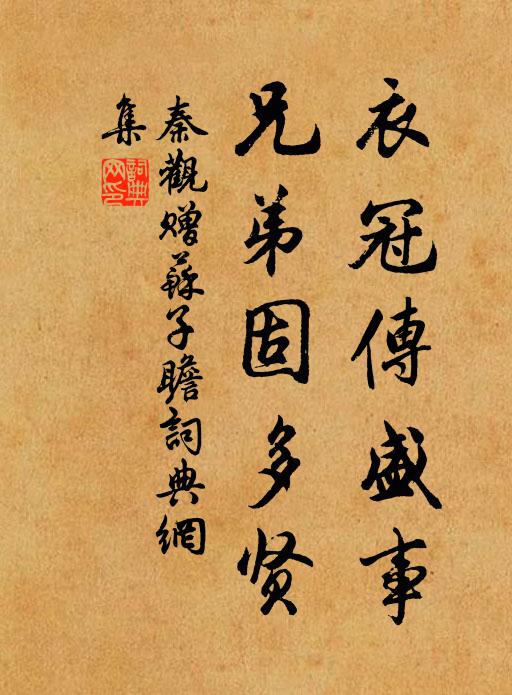 衣冠傳盛事
兄弟固多贤
秦觀贈蘇子瞻詞典網
集
詞典
网印